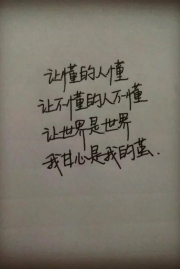 让懂的人懂
让不懂的人不懂
让世界是世界
我甘心是我的茧.